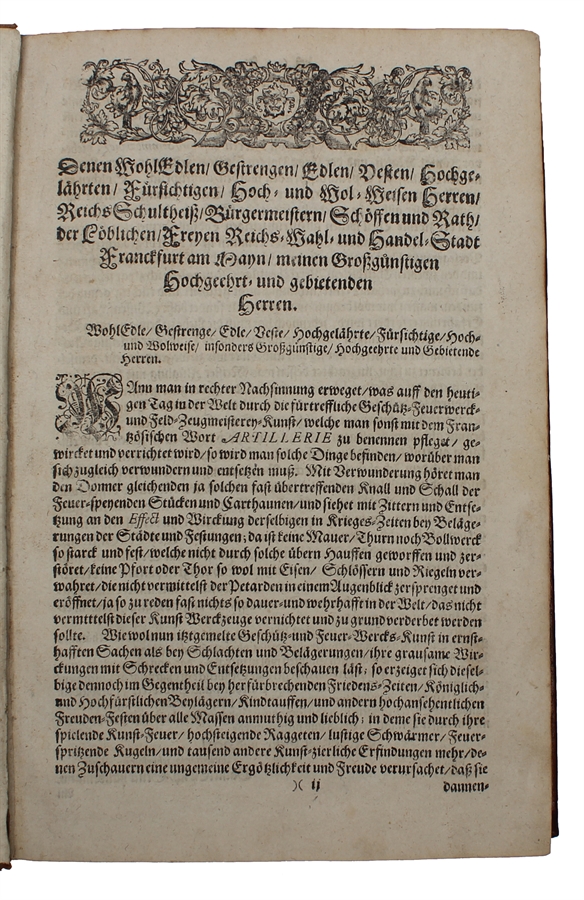 Denen WohlEdlen/ Gestrengen/ Edlen/ Vesten/ Hochge-
lährten/ Fürsichtigen/ Hoch- und Wol-Weisen Herren/
Reichs Schultheiß/ Bürgermeistern/ Schöffen und Rath/
der Löblichen/ Freyen Reichs-Wahl- und Handel-Stadt
Franckfurt am Mayn/ meinen Großgünstigen
Hochgeehrt- und gebietenden
Herren.
WohlEdle/ Gestrenge/ Edle/ Veste/ Hochgelährte/ Fürsichtige/ Hoch-
und Wolweise/ insonders Großgünstige/ Hochgeehrte und Gebietende
Herren.
WAnn man in rechter Nachsinnung erweget/ was auff den heuti-
gen Tag in der Welt durch die fürtreffliche Geschütz-Feuerwerck-
und Feld-Zeugmeisterey-Kunst/ welche man sonst mit dem Fran-
tzösischen Wort ARTILLERIE zu benennen pfleget/ ge-
wircket und verrichtet wird/ so wird man solche Dinge befinden/ worüber man
sich zugleich verwundern und entsetzen muß. Mit Verwunderung höret man
den Donner gleichenden ja solchen fast übertreffenden Knall und Schall der
Feuer-speyenden Stücken und Carthaunen/ und siehet mit Zittern und Entse-
tzung an den Effect und Wirckung derselbigen in Krieges-Zeiten bey Beläge-
rungen der Städte und Festungen; da ist keine Mauer/ Thurn noch Bollwerck
so starck und fest/ welche nicht durch solche übern Hauffen geworffen und zer-
störet/ keine Pfort oder Thor so wol mit Eisen/ Schlössern und Riegeln ver-
wahret/ die nicht vermittelst der Petarden in einem Augenblick zersprenget und
eröffnet/ ja so zu reden fast nichts so dauer- und wehrhafft in der Welt/ das nicht
vermttelst dieser Kunst Werckzeuge vernichtet und zu grund verderbet werden
sollte. Wie wol nun itztgemelte Geschütz- und Feuer-Wercks-Kunst in ernst-
hafften Sachen als bey Schlachten und Belägerungen/ ihre grausame Wir-
ckungen mit Schrecken und Entsetzungen beschauen läst; so erzeiget sich diesel-
bige dennoch im Gegentheil bey herfürbrechenden Friedens-Zeiten/ Königlich-
und Hochfürstlichen Beylägern/ Kindtauffen/ und andern hochansehentlichen
Freuden-Festen über alle Massen anmuthig und lieblich; in deme sie durch ihre
spielende Kunst-Feuer/ hochsteigende Raggeten/ lustige Schwärmer/ Feuer-
spritzende Kugeln/ und tausend andere Kunst-zierliche Erfindungen mehr/ de-
nen Zuschauern eine ungemeine Ergötzlichkeit und Freude verursachet/ daß sie
)( ij dannen-